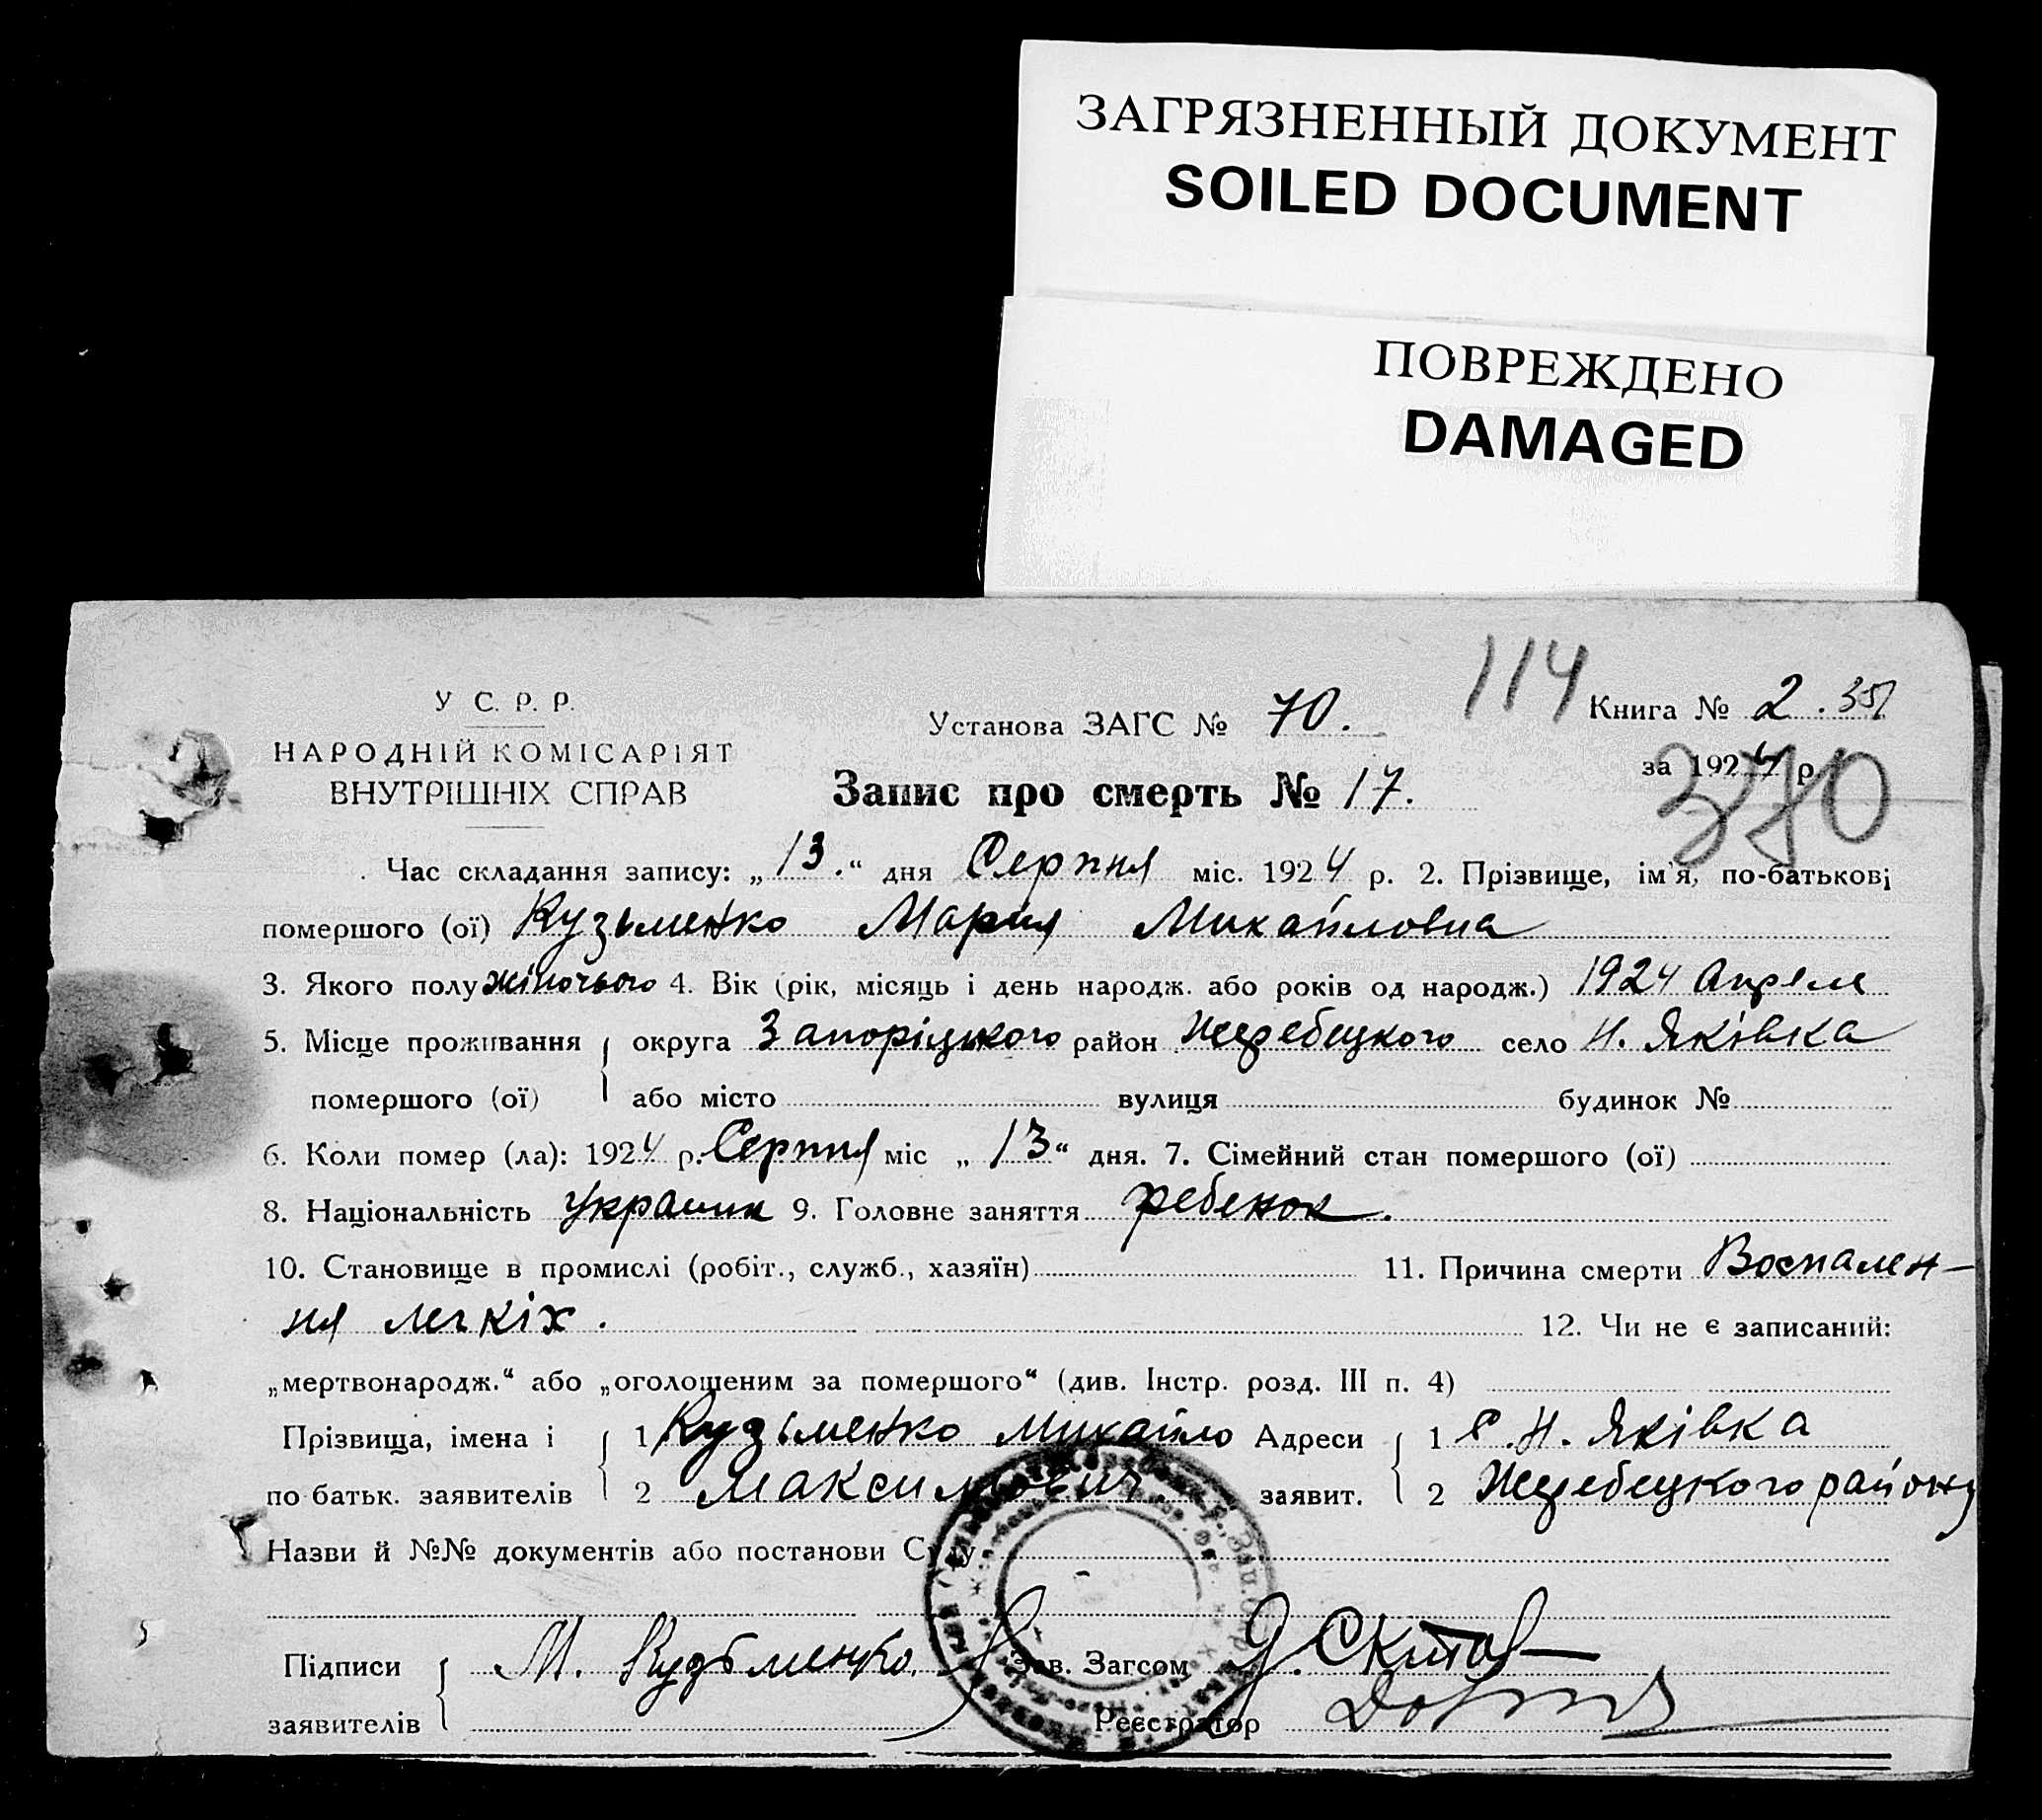 ЗАГРЯЗНЕННЫЙ ДОКУМЕНТ
SOILED DOCUMENT
ПОВРЕЖДЕНО
DAMAGED
114
У С. Р. Р.
Установа ЗАГС № 70. Книга № 2.
НАРОДНІЙ КОМІСАРІЯТ
за 1924 р.
370
ВНУТРІШНІХ СПРАВ
Запис про смерть № 17.
. Час складання запису: „13.“ дня Серпня міс. 1924 р. 2. Прізвище, ім'я, по-батькові
помершого (ої) Кузьменко Мария Михайловна
3. Якого полу жіночього 4. Вік (рік, місяць і день народж. або років од народж.) 1924 Апреля
5. Місце проживання округа Запоріцького район Жеребецкого село Н. Яківка
помершого (ої) або місто вулиця будинок №
6. Коли помер (ла): 1924 р. Серпня міс „13“ дня. 7. Сімейний стан помершого (ої)
8. Національність украин 9. Головне заняття ребенок.
10. Становище в промислі (робіт., служб., хазяїн) 11. Причина смерти Воспален-
ня легкіх. 12. Чи не є записаний:
„мертвонародж.“ або „оголошеним за помершого“ (див. Інстр. розд. III п. 4)
Прізвища, імена і 1 Кузьменко Михайло Адреси 1 С. Н. Яківка
по батьк. заявителів 2 Максимович заявит. 2 Жеребецкого району
Назви й №№ документів або постанови Суду
Підписи М. Кузьменко Зав. Загсом
заявителів Реєстратор